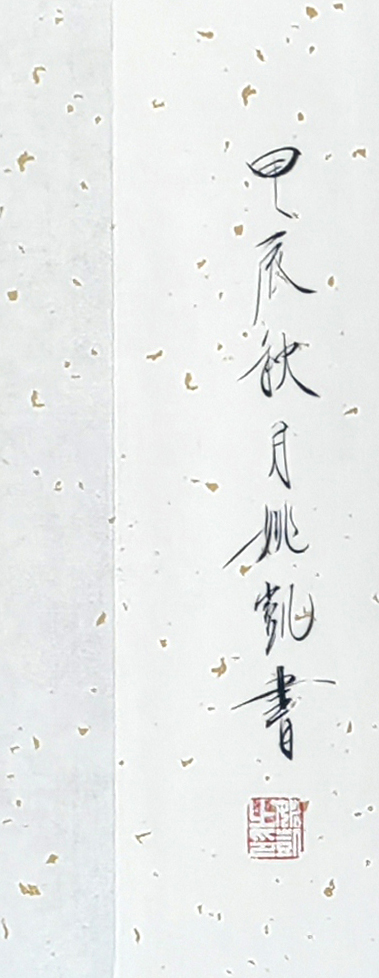 甲辰秋月姚凱書